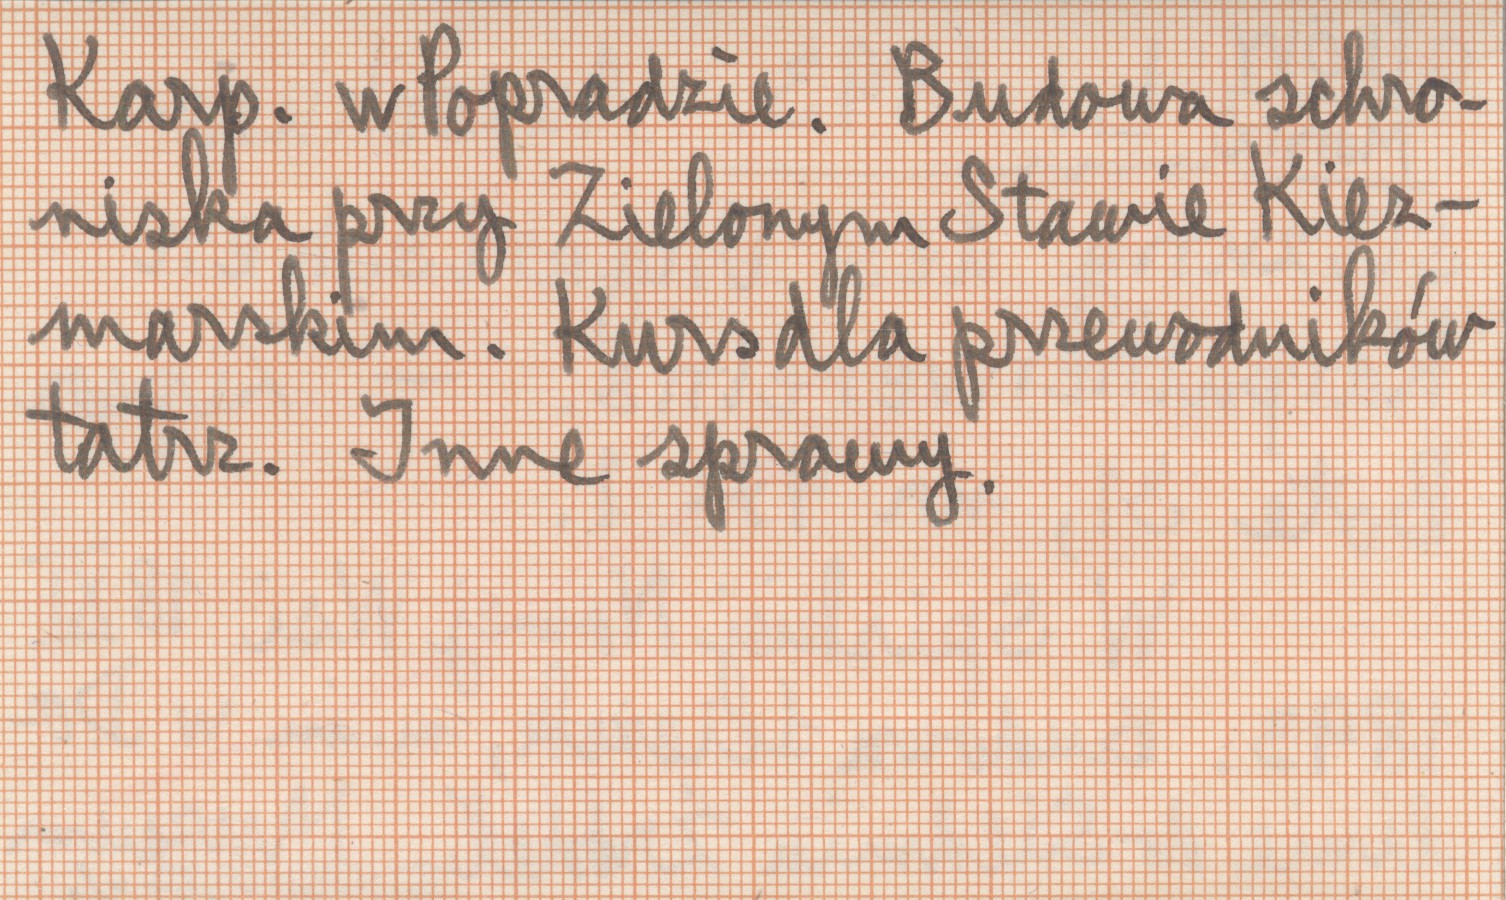 Karp. w Popradzie. Budowa schro-
niska przy Zielonym Stawie Kiez-
marskim. Kurs dla przewodników
tatrz. Inne sprawy.